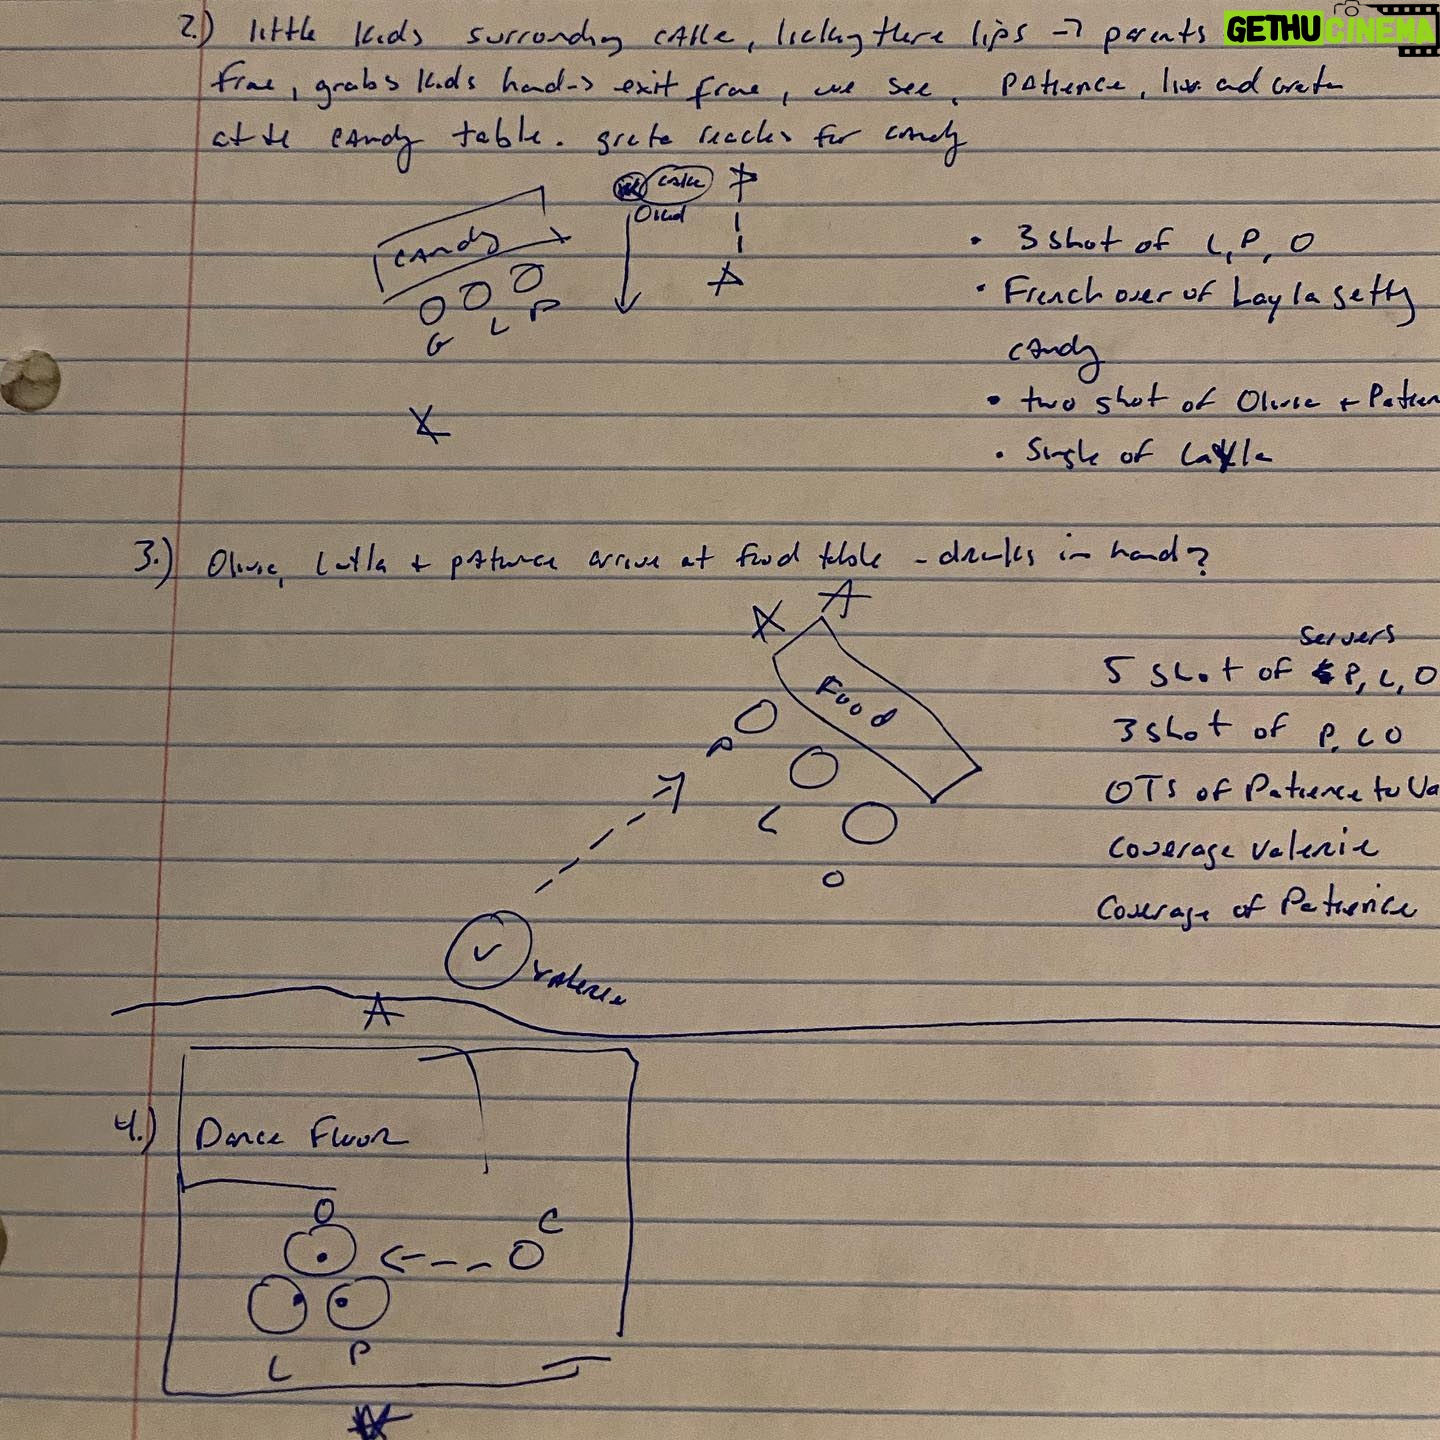 GETHUCINEMA
2.) little kids surrounding cake, licking there lips → parents
frame, grabs kids hand → exit frame, we see, Patience, liv and Greta
at the candy table. greta reaches for candy
cake
Dead
candy
G L P
• 3 shot of L, P, O
• French over of Layla getting
candy
• two shot of Olivia + Patien
• Single of Layla
3.) Olivia, Layla + patience arrive at food table - drinks in hand?
Food
P
L
O
V
Valerie
Servers
5 shot of P, L, O
3 shot of P, L O
OTS of Patience to Va
Coverage valerie
Coverage of Patience
4.) Dance Floor
O
C
L P